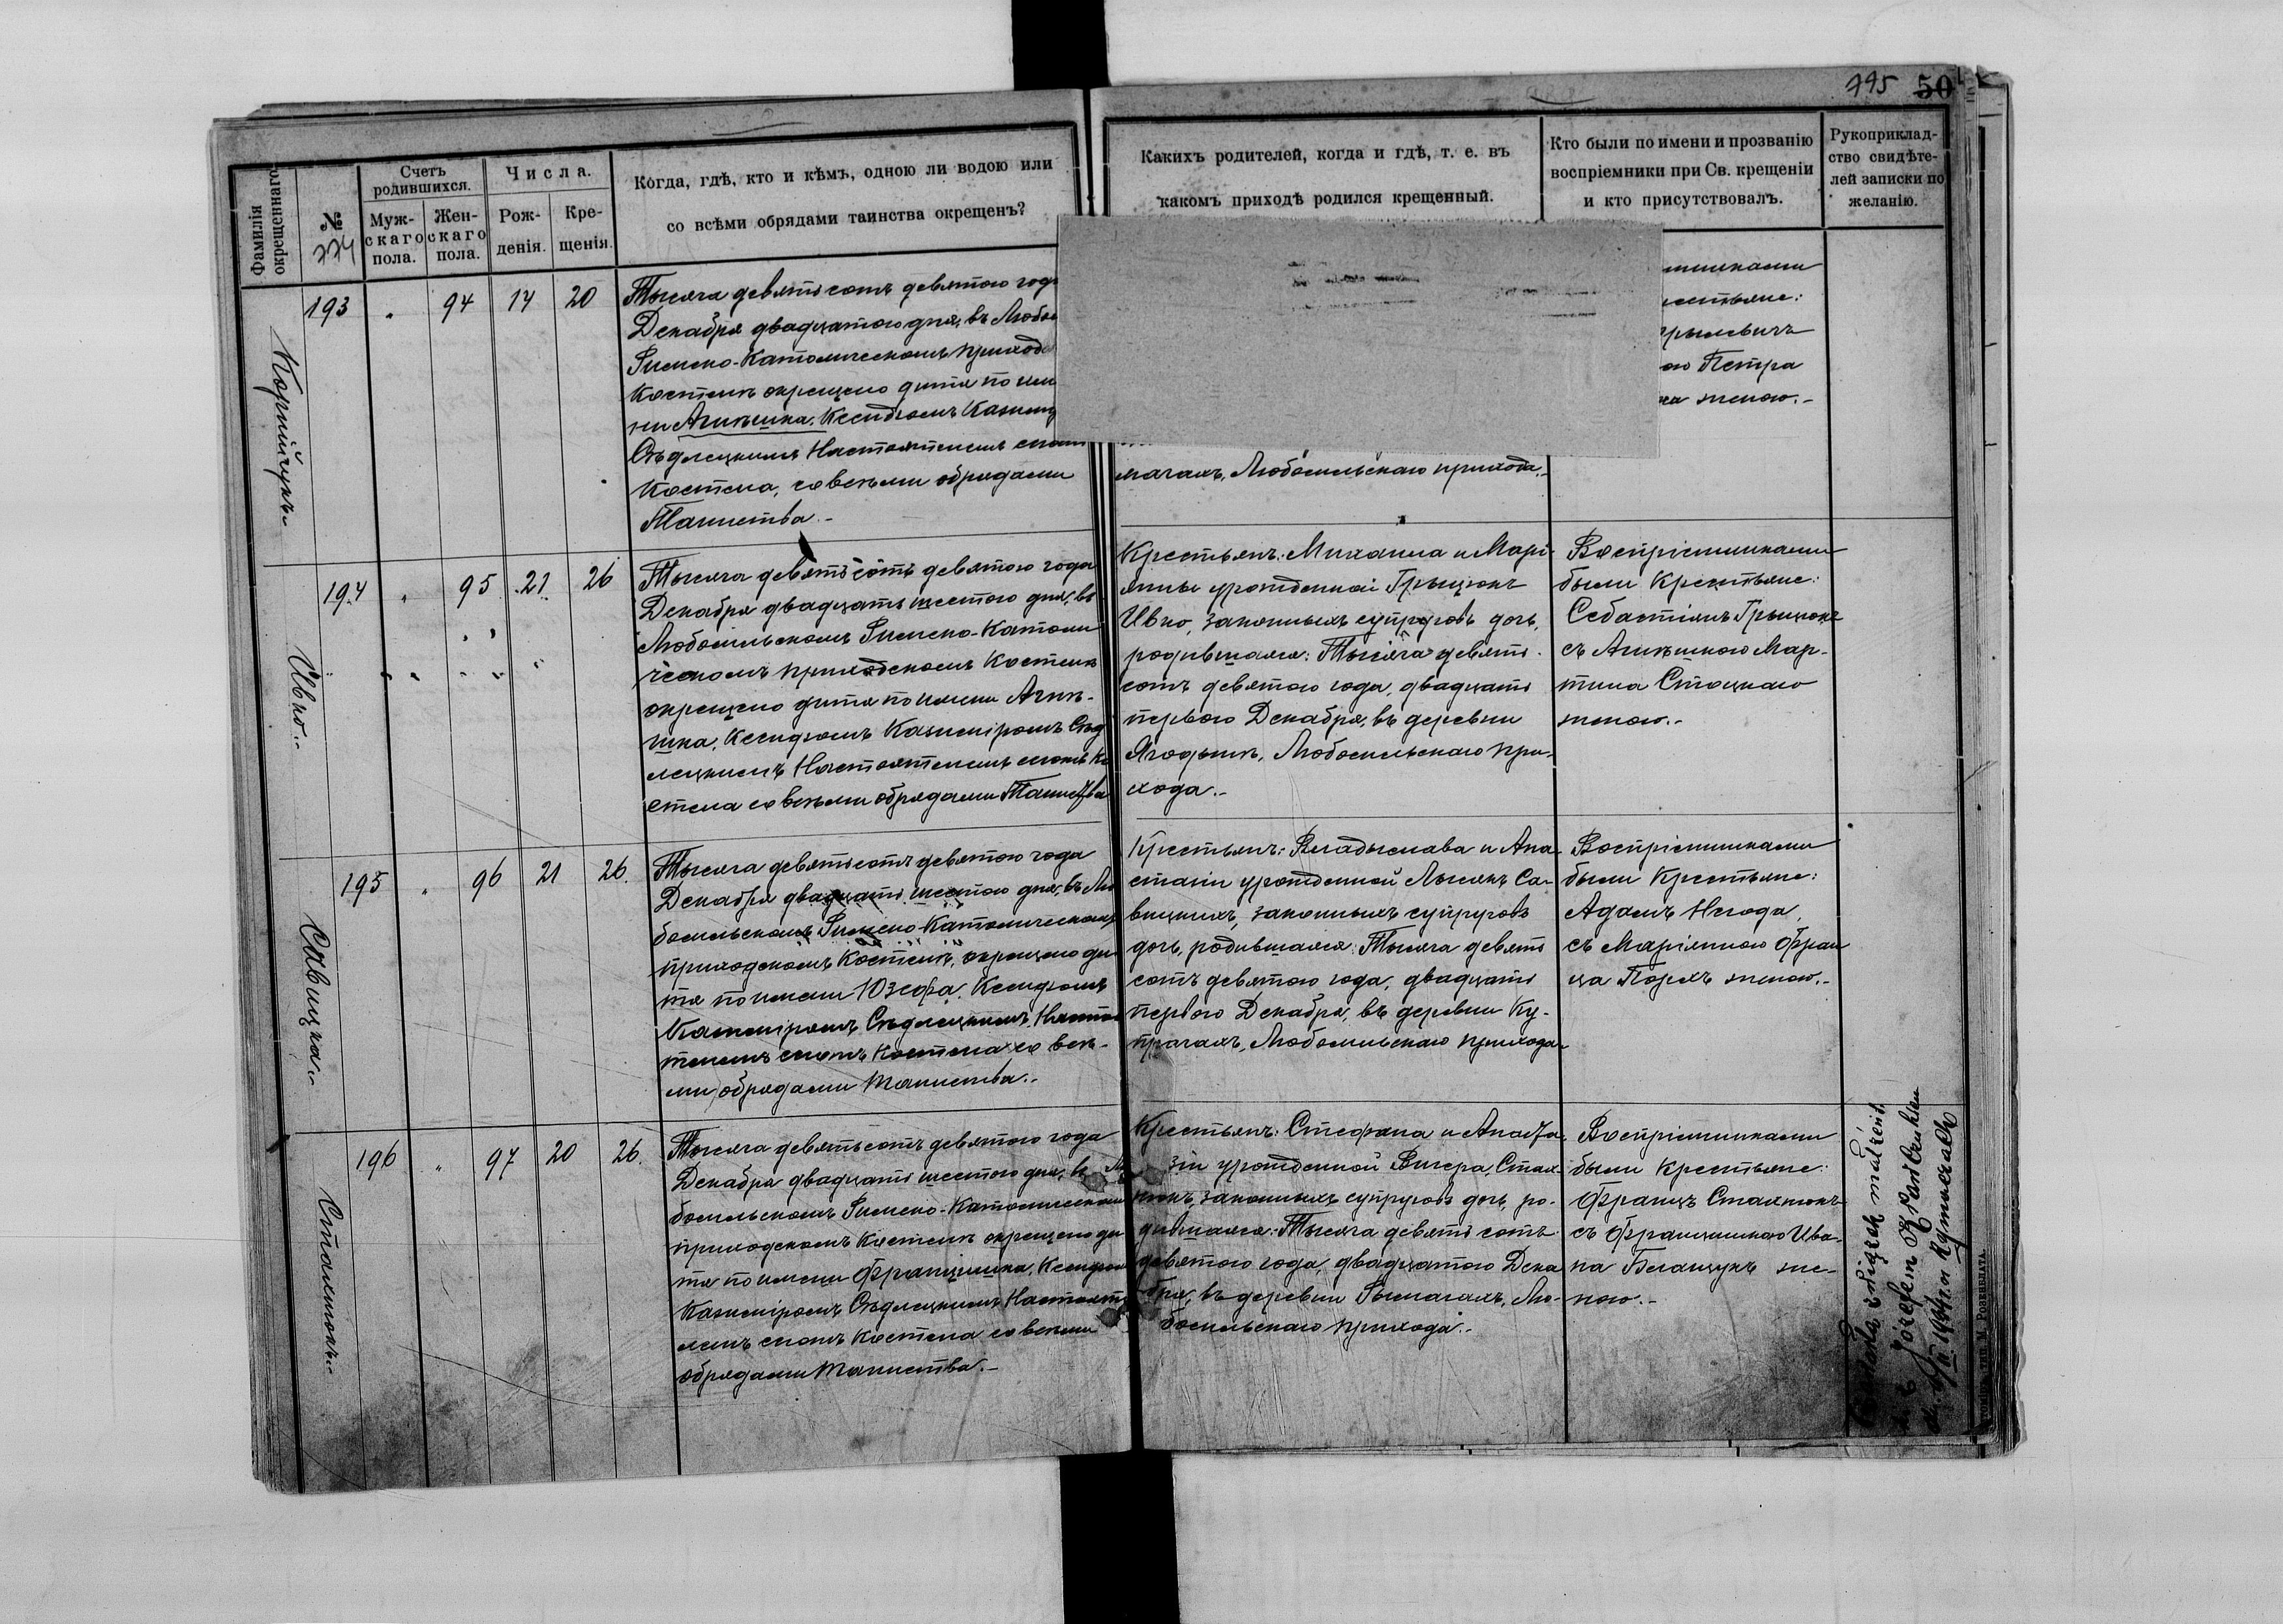 795 50
Фамилія окрещеннаго.
№
774
Счетъ родившихся.
Муж-скаго пола.
Жен-скаго пола.
Числа.
Рож-денія.
Кре-щенія.
Когда, гдѣ, кто и кѣмъ, одною ли водою или
со всѣми обрядами таинства окрещенъ?
Какихъ родителей, когда и гдѣ, т. е. въ
какомъ приходѣ родился крещенный.
Кто были по имени и прозванію
воспріемники при Св. крещеніи
и кто присутствовалъ.
Рукоприклад-
ство свидѣте-
лей записки по
желанію.
Корнійчукъ.
193 " 94 14 20
Тысяча девятьсотъ девятого год
Декабря двадцатого дня, въ Любом
Римско-Католическомъ приход
Костелѣ окрещено дитя по име
ни Агнѣшка, Ксендзомъ Казим
Сѣдлецкимъ Настоятелемъ сего
Костела, со всѣми обрядами
Таинства.-
махахъ, Любомльскаго прихода.-
никами
рестьяне:
рылевичъ
ою Петра
ка женою.-
Ивко.
194 " 95 21 26
Тысяча девятьсотъ девятого года
Декабря двадцать шестого дня, въ
Любомльскомъ Римско-Католи
ческомъ приходскомъ Костелѣ
окрещено дитя по имени Агнѣ-
шка, Ксендзомъ Казиміромъ Сѣд
лецкимъ Настоятелемъ сего Ко
стела со всѣми обрядами Таинства
Крестьянъ: Михаила и Марі-
янны урожденной Грыцюкъ
Ивко, законныхъ супруговъ дочь,
родившаяся: Тысяча девять-
сотъ девятого года, двадцать
первого Декабря, въ деревни
Ягодынѣ, Любомльскаго при-
хода.-
Воспріемниками
были Крестьяне:
Себастіянъ Грыцюкъ
съ Агнѣшкою Мар-
тина Стоцкаго
женою.-
Савицка.
195 " 96 21 26.
Тысяча девятьсотъ девятого года
Декабря двадцать шестого дня, въ Лю
бомльскомъ Римско-Католическомъ
приходскомъ Костелѣ, окрещено ди
тя по имени Юзефа, Ксендзомъ
Казиміромъ Сѣдлецкимъ, Настоя
телемъ сего Костела со всѣ-
ми обрядами таинства.-
Крестьянъ: Владыслава и Ана
стасіи урожденной Лысякъ Са-
вицкихъ, законныхъ супруговъ
дочь, родившаяся: Тысяча девять
сотъ девятого года, двадцать
первого Декабря, въ деревни Ку-
прачахъ, Любомльскаго прихода-
Воспріемниками
были Крестьяне:
Адамъ Негода,
съ Маріянною Фран
ца Порахъ женою.-
196 " 97 20 26.
Тысяча девятьсотъ девятого года
Декабря двадцать шестого дня, въ Лю
бомльскомъ Римско-Католическомъ
приходскомъ Костелѣ окрещено ди
тя по имени Францишка, Ксендзомъ
Казиміромъ Сѣдлецкимъ Настояте
лемъ сего Костела со всѣми
обрядами таинства.-
Крестьянъ: Стефана и Анаста
зіи урожденной Вигера, Стах
нюкъ, законныхъ супруговъ дочь, ро-
дившаяся: Тысяча девять сотъ
девятого года, двадцатого Дека
бря, въ деревни Рымачахъ, Лю-
бомльскаго прихода.-
Воспріемниками
были Крестьяне:
Францъ Стахнюкъ
съ Францишкою Ива-
на Беганцукъ же-
ною.-
związek małżeński
z Józefem
w Rymaczach
тип. М. Розенблата.